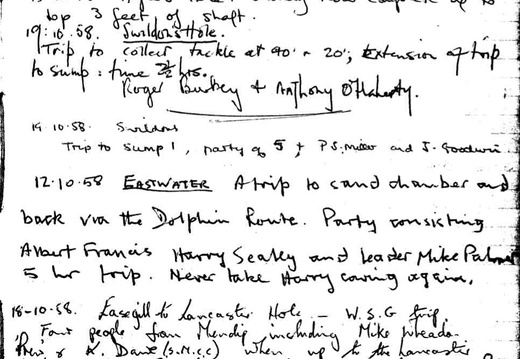 top 3 feet of shaft.
19:10.58. Swildons Hole.
Trip to collect tackle at 40' & 20'; Extension of trip
to sump: time 2½ hrs.
Roger Buckey & Anthony O'Flaherty.
19.10.58. Swildons
Trip to Sump 1, party of 5, P.S. and J. Goodwin
12.10.58 EASTWATER A trip to sand chamber and
back via the Dolphin Route. Party consisting
Albert Francis Harry Sealey and leader Mike Palmer
5 hr trip. Never take Harry caving again.
18-10.58. Easegill to Lancaster Hole – W.S.G trip.
Four people from Mendip including Mike Wheadon
Prew & K. Dawe (S.M.C.C) When up to the Lancaster